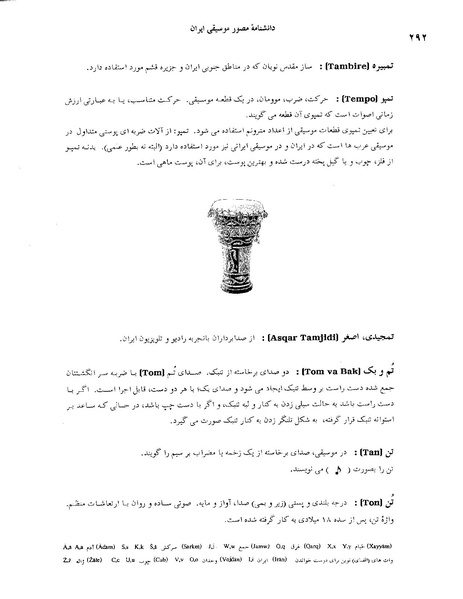 دانشنامهٔ مصور موسیقی ایران
۲۹۲
تمبیره [Tambire] : ساز مقدس نوبان که در مناطق جنوبی ایران و جزیره قشم مورد استفاده دارد.
تمپو [Tempo] : حرکت، ضرب، موومان، در یک قطعه موسیقی. حرکت متناسب، یا به عبارتی ارزش
زمانی اصوات است که تمپوی آن قطعه می گویند.
برای تعیین تمپوی قطعات موسیقی از اعداد مترونم استفاده می شود. تمپو: از آلات ضربه ای پوستی متداول در
موسیقی عرب ها است که در ایران و در موسیقی ایرانی نیز مورد استفاده دارد (البته نه بطور علمی). بدنه تمپو
از فلز، چوب و یا گیل پخته درست شده و بهترین پوست، برای آن، پوست ماهی است.
تمجیدی، اصغر [Asqar Tamjidi] : از صدابرداران باتجربه رادیو و تلویزیون ایران.
تُم و بک [Tom va Bak] : دو صدای برخاسته از تنبک. صدای تُم [Tom] با ضربه سر انگشتان
جمع شده دست راست بر وسط تنبک ایجاد می شود و صدای بک؛ با هر دو دست، قابل اجرا است. اگر با
دست راست باشد به حالت سیلی زدن به کنار و لبه تنبک، و اگر با دست چپ باشد، در حالی که ساعد بر
استوانه تنبک قرار گرفته، به شکل تلنگر زدن به کنار تنبک صورت می گیرد.
تن [Tan] : در موسیقی، صدای برخاسته از یک زخمه یا مضراب بر سیم را گویند.
تن را بصورت ( ♪ ) می نویسند.
تُن [Ton] : درجه بلندی و پستی (زیر و بمی) صدا، آواز و مایه. صوتی ساده و روان با ارتعاشات منظم.
واژهٔ تن، پس از سده ۱۸ میلادی به کار گرفته شده است.
(Xayyām) خیام X,x V,y (Qarq) غرق Q,q (Jamw) جمع W,w (Sarkeš) سرکش Š,š K,k S,s (Ādam) آدم Ā,ā A,a
وات های (الفبای) نوین برای درست خواندن (Iran) ایران I,i (Vojdan) وجدان V,v O,o (Cub) چوب C,c U,u (Žāle) ژاله Ž,ž